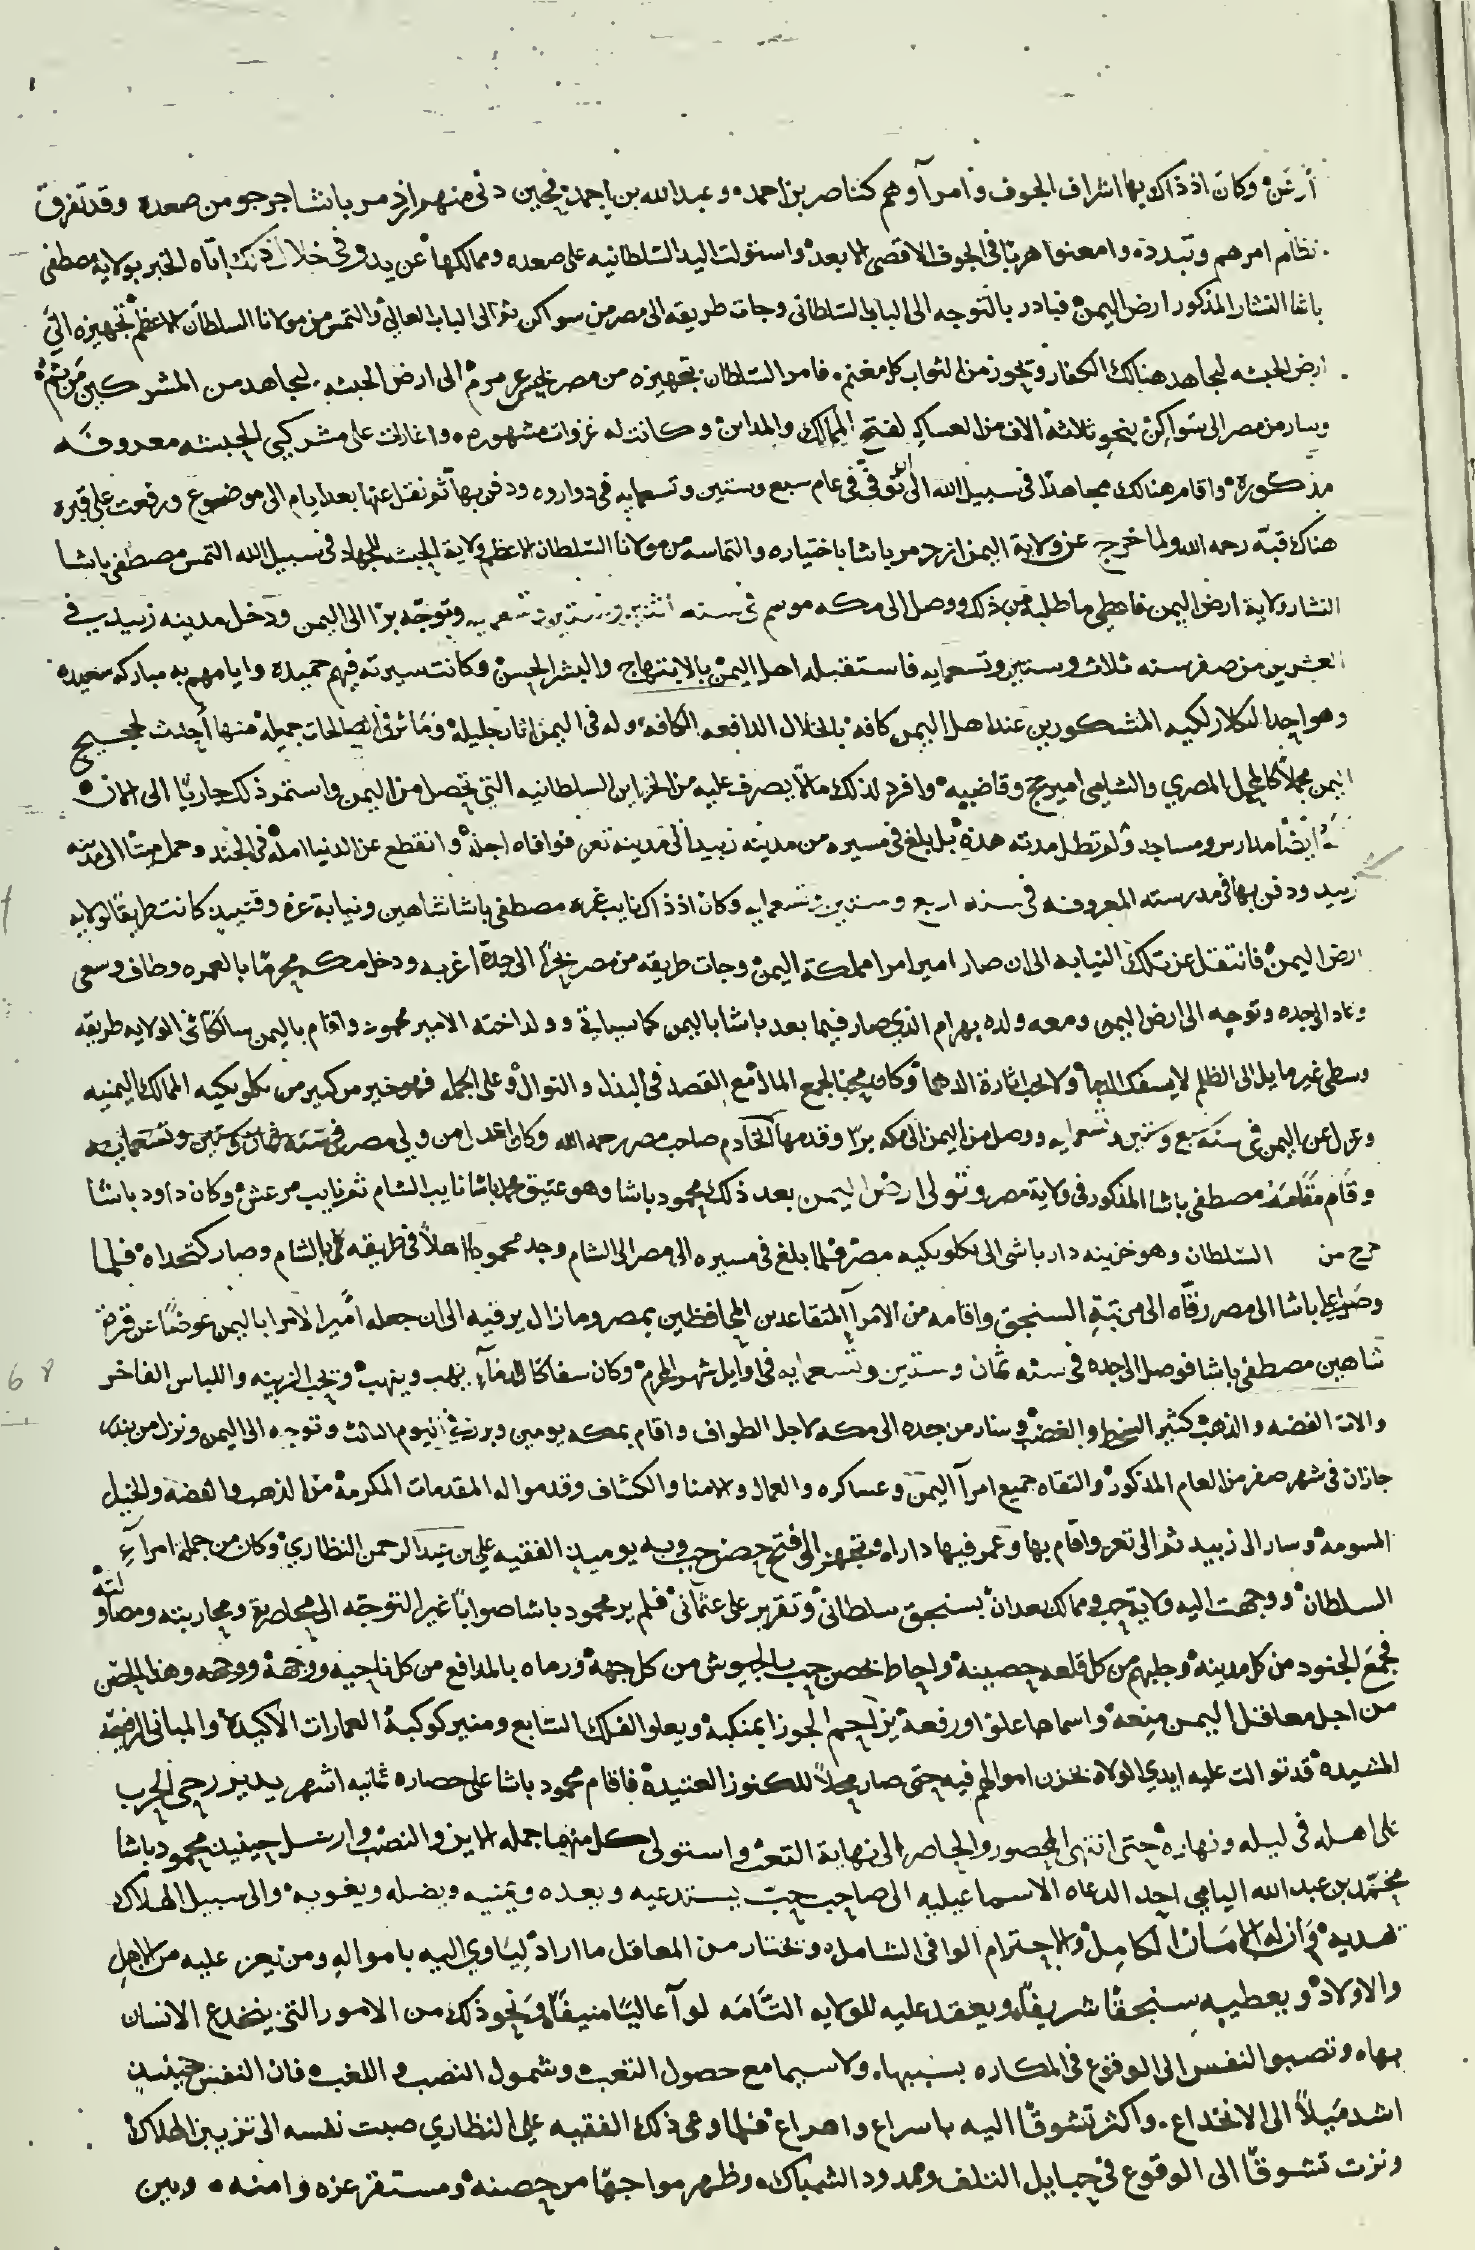 أرغن وكان اذ ذاك بها اشراف الجوف وأمرآوهم كناصر بن احمد وعبد الله بن احمد فحين دنى منهم ازدمر باشا خرجو من صعده وقد تفرق
نظام امرهم وتبدد وامعنوا هربًا في الجوف الاقصى الابعد واستولت اليد السلطانيه على صعده وممالكها عن يد وفي خلال ذلك اتاه الخبر بولاية مصطفى
باشا النشار المذكور ارض اليمن فبادر بالتوجه الى الباب السلطاني وجات طريقه الى مصر من سواكن ثم الى الباب العالي والتمس من مولانا السلطان الاعظم تجهيزه الى
ارض الحبشه ليجاهد هنالك الكفار ويحوز من الثواب كل مغنم فامر السلطان بتجهيزه من مصر بجيش عرمرم الى ارض الحبشه ليجاهد من المشركين من ثم
وسار من مصر الى سواكن بنحو ثلاثة الاف من العساكر لفتح الممالك والمداين وكانت له غزوات مشهوره واغارات على مشركي الحبشه معروفه
مذكورة واقام هنالك مجاهدًا في سبيل الله الى ان توفي في عام سبع وستين وتسعمايه في دواروه ودفن بها ثم نقل عنها بعد ايام الى موضوع ورفعت على قبره
هناك قبة رحمه الله ولما خرج عن ولاية اليمن ازدمر باشا باختياره والتماسه من مولانا السلطان الاعظم ولاية الحبشه للجهاد في سبيل الله التمس مصطفى باشا
النشار ولاية ارض اليمن فاعطي ما طلبه من ذلك ووصل الى مكه موسم في سنه اثنتين وستين وتسعمايه وتوجّه برًا الى اليمن ودخل مدينه زبيد في
العشرين من صفر سنه ثلاث وستين وتسعمايه فاستقبله اهل اليمن بالابتهاج والبشر الحسن وكانت سيرته فيهم حميده وايامهم به مباركه سعيده
وهو احد البكلاربكيه المشكورين عند اهل اليمن كافه بالخلال الدافعه الكافه وله في اليمن اثار جليلة ومآثر في الصالحات جميلة منها أحدث لحجيج
اليمن محملاً كالمحمل المصري والشامي امير حج وقاضيه وافرد لذلك مالا يصرف عليه من الخزاين السلطانيه التي تحصل من اليمن واستمر ذلك جاريًا الى الان
وله ايضًا مدارس ومساجد ولم تطل مدته هذه بل بلغ في مسيره من مدينه زبيد الى مدينه تعز فوافاه اجله وانقطع عن الدنيا امله في الجند وحمل ميتًا الى مدينه
زبيد ودفن بها في مدرسته المعروفه في سنه اربع وستين وتسعمايه وكان اذ ذاك نايب غزه مصطفى باشا شاهين ونيابة غزه وقتيذ كانت طريقًا لولايه
ارض اليمن فانتقل عن تلك النيابه الى ان صار امير امرا مملكة اليمن وجات طريقه من مصر بحرًا الى جدة اغربه ودخل مكه محرمًا بالعمره وطاف وسعى
وعاد الى جده وتوجه الى ارض اليمن ومعه ولده بهرام الذي صار فيما بعد باشا باليمن كما سياتي وولد اخته الامير محمود واقام باليمن سالكًا في الولايه طريقه
وسطى غير مايل الى الظلم لا يسفك الدما ولا يحب اثارة الدهما وكان محبًا لجمع المال مع القصد في البذل والنوال وعلى الجمله فهو خير من كثير من بكلربكيه الممالك اليمنيه
وعزل عن اليمن في سنه سبع وستين وتسعمايه ووصل من اليمن الى مكه برًا وقدمها الخادم صاحب مصر رحمه الله وكان اعدل من ولي مصر في سنه ثمان وستين وتسعمايه
وقام مقامه مصطفى باشا المذكور في ولاية مصر وتولى ارض اليمن بعد ذلك محمود باشا وهو عتيق محمد باشا نايب الشام ثم نايب مرعش وكان داود باشا
خرج من السلطان وهو خزينه دار باشي الى بكلربكيه مصر فلما بلغ في مسيره الى مصر الى الشام وجد محمودًا اهلاً في طريقه بالشام وصار كتخداه فلما
وصل على باشا الى مصر رقّاه الى مرتبة السنجق واقامه من الامرآ المتقاعدين المحافظين بمصر وما زال يرقيه الى ان جعله أمير الامرا باليمن عوضًا عن قره
شاهين مصطفى باشا فوصل الى جده في سنه ثمان وستين وتسعمايه في اوايل شهر المحرم وكان سفاكًا للدمآء يهب وينهب ويحب الزينه واللباس الفاخر
والات الفضه والذهب كثير السخط والغضب وسار من جده الى مكه لاجل الطواف واقام بمكه يومين وبرز في اليوم الثالث وتوجه الى اليمن ونزل من بندر
جازان في شهر صفر من العام المذكور والتقاه جميع امرآ اليمن وعساكره والعمال والامنا والكشاف وقدموا له المقدمات المكرمة من الذهب والفضه والخيل
المسومة وسار الى زبيد ثم الى تعز واقام بها وعمر فيها دارا وتجهز الى فتح حصن حب وبه يوميذ الفقيه علي بن عبد الرحمن النظاري وكان من جمله امرآء
السلطان ووجهت اليه ولاية حب وممالك بعدان بسنجق سلطاني وتقرير على عثماني فلم ير محمود باشا صوابًا غير التوجّه الى محاصرته ومحاربته ومصاولته
فجمع الجنود من كل مدينه وجلبهم من كل قلعه حصينه واحاط بحصن حب بالجيوش من كل جهه ورماه بالمدافع من كل ناحيه ووجهة ووجهه وهذا الحصن
من اجل معاقل اليمن منعه واسماها علوا ورفعة يزاحم الجوزا بمنكبه ويعلو الفلك السابع ومنير كوكبه العمارات الاكيدة والمباني الرفيعه
المشيدة قد توالت عليه ايدي الولاه بخزن اموالهم فيه حتى صار محلاً للكنوز العتيدة فاقام محمود باشا على حصاره ثمانيه اشهر يدير رحى الحرب
على اهله في ليله ونهاره حتى انتهى المحصور والمحاصر الى نهاية التعب واستولى كل منهما جمله الاين والنصب وارسل حينيذ محمود باشا
محمّد بن عبد الله اليامي احد الدعاه الاسماعيليه الى صاحب حبّ يستدعيه ويعده ويمنيه ويضله ويغويه والى سبيل الهلاك
يهديه وان له الامان الكامل والاحترام الوافى الشامل ويختار من المعاقل ما اراد ليَاوي اليه بامواله ومن يعز عليه من الاهل
والاولاد ويعطيه سنجقًا شريفًا ويعقد عليه للولايه التَّامّه لوآ عاليًا منيفًا ونحو ذلك من الامور التي ينخدع الانسان
بها وتصبو النفس الى الوقوع في المكاره بسببها ولاسيما مع حصول التعب وشمول النصب واللغب فان النفس حينيذٍ
اشد ميلاً الى الانخداع واكثر تشوقًا اليه باسراع واهراع فلما وعى ذلك الفقيه علي النظاري صبت نفسه الى تزيين الهلاك
ونزت تشوقًا الى الوقوع في حبايل التلف وممدود الشباك وظهر مواجهًا من حصنه ومستقر عزه وامنه وبين